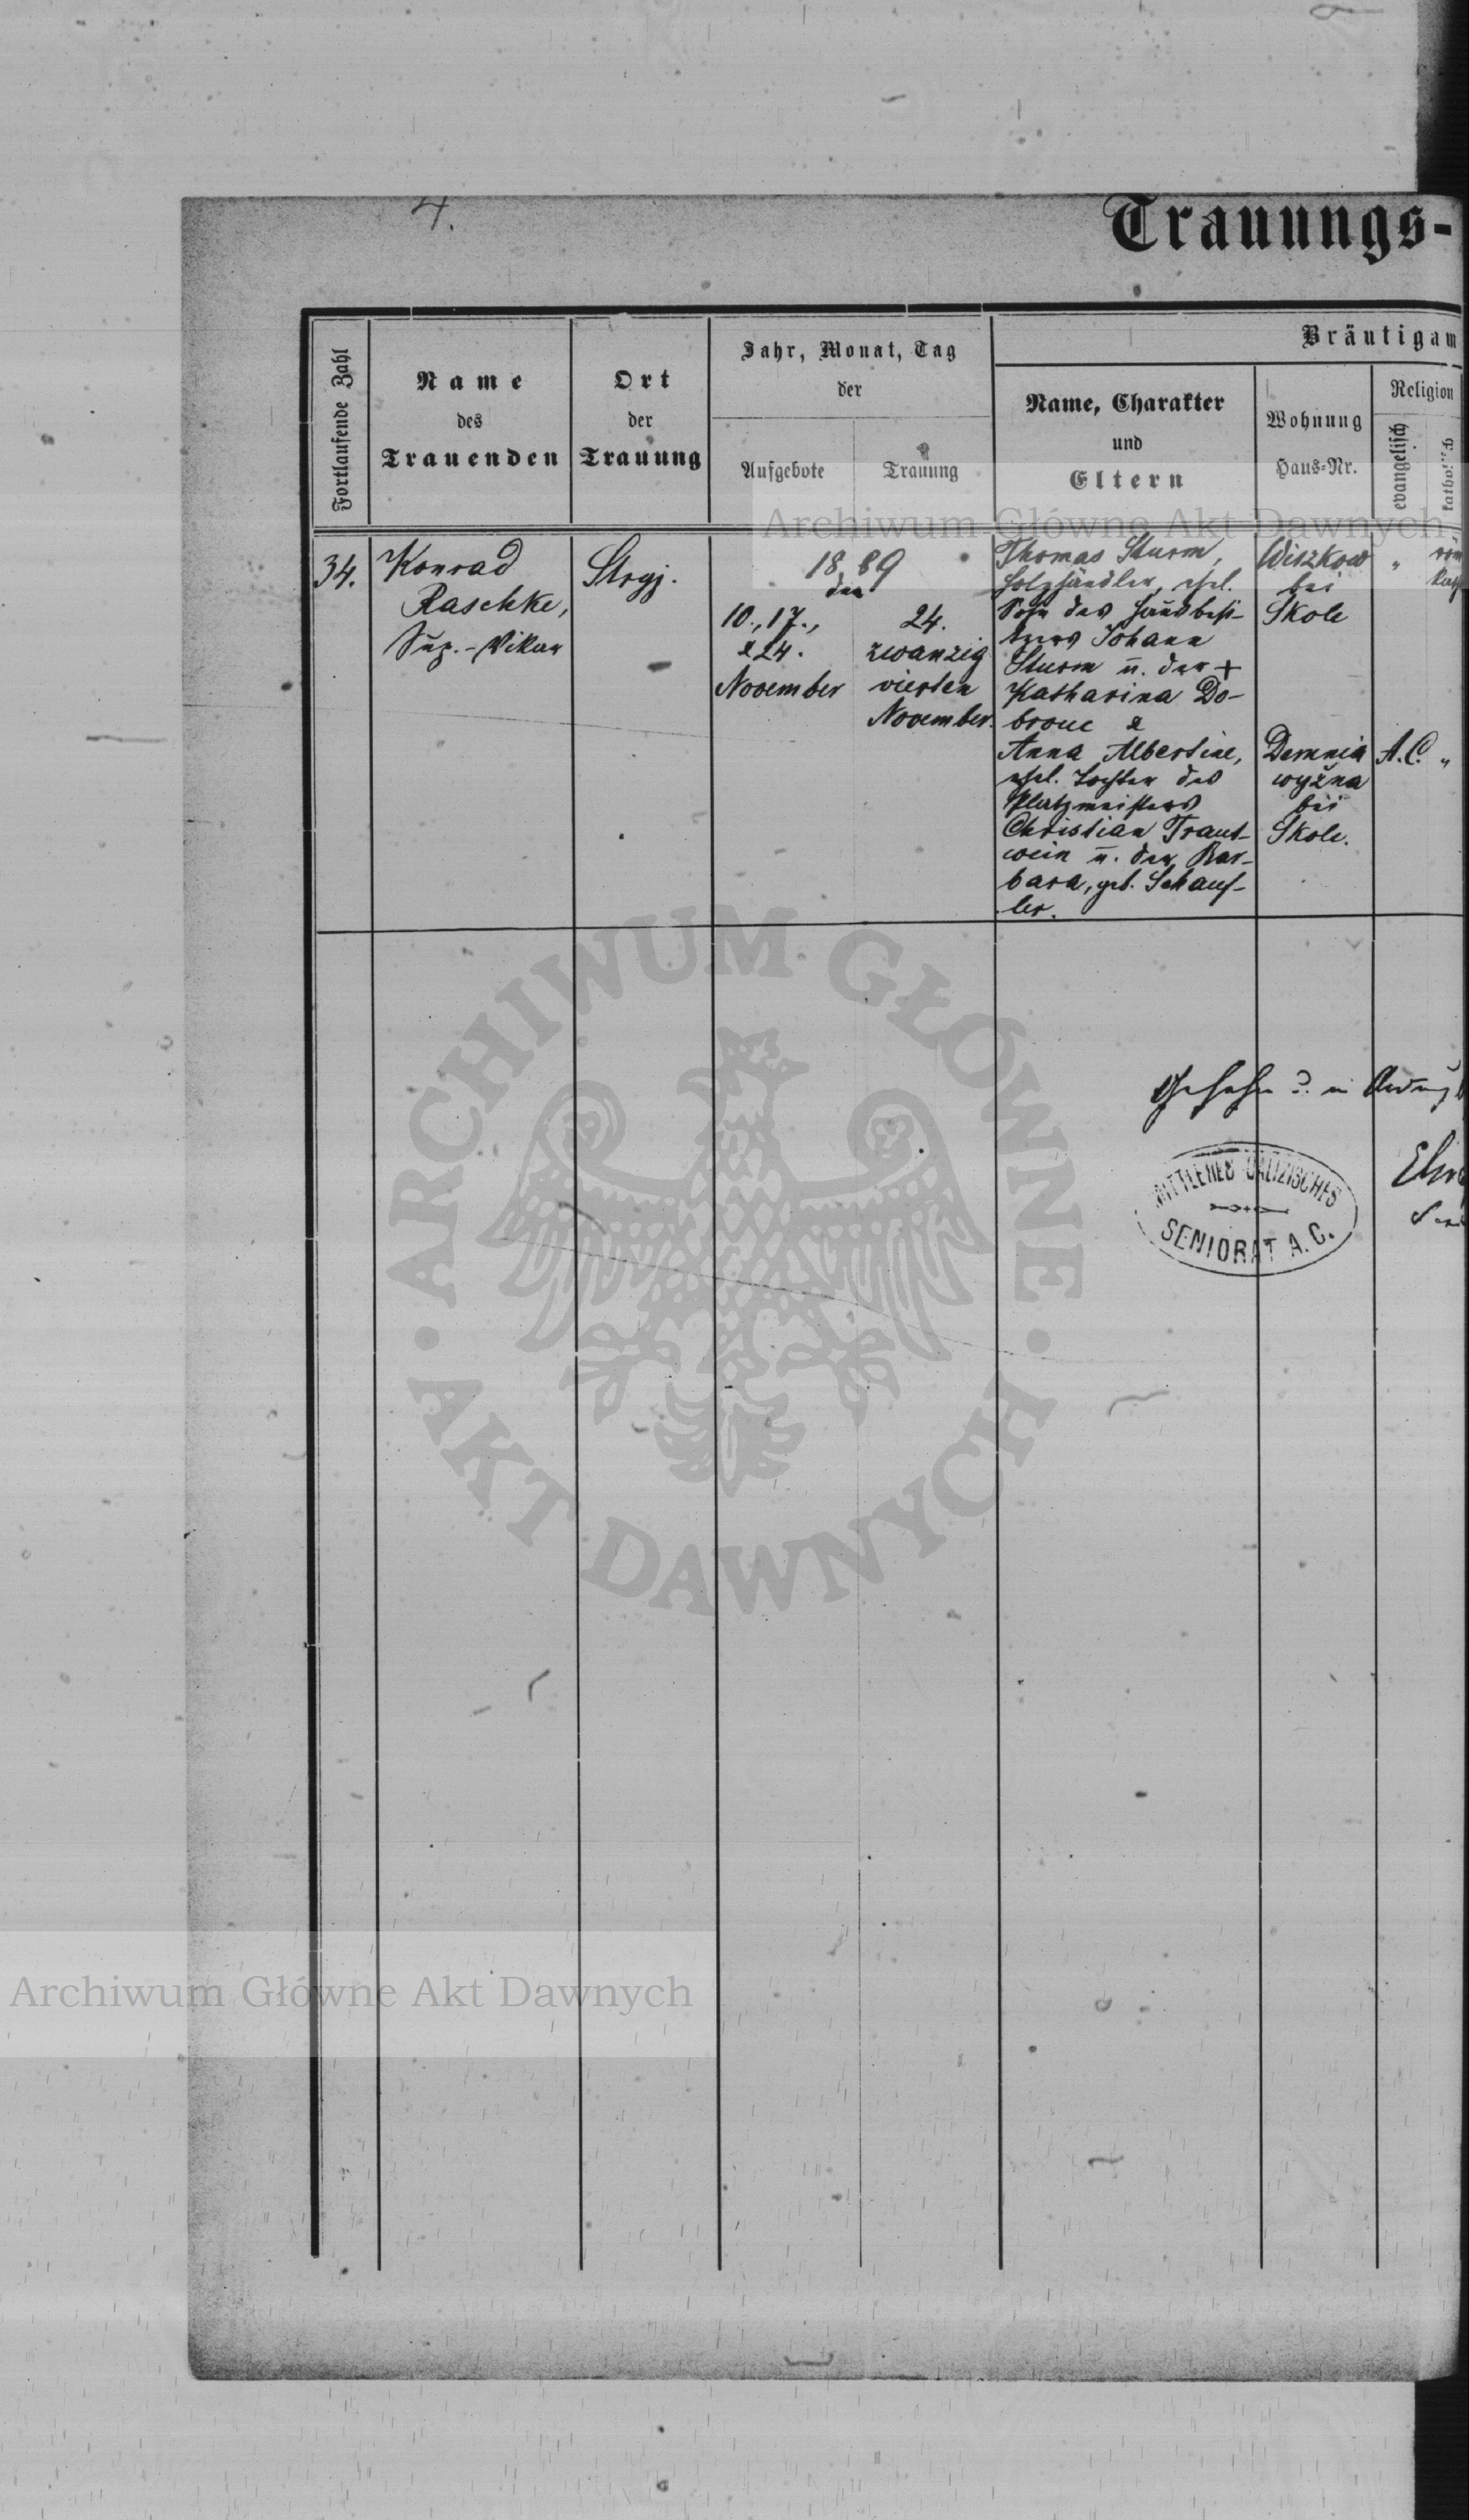 4.
Trauungs-
Fortlaufende Zahl
Name
des
Trauenden
Ort
der
Trauung
Jahr, Monat, Tag
der
Aufgebote
Trauung
Bräutigam
Name, Charakter
und
Eltern
Wohnung
Haus-Nr.
Religion
evangelisch
katholisch
Archiwum Główne Akt Dawnych
34.
Konrad
Raschke,
Sup.-Vikar
Stryj.
1889
den
10., 17.,
& 24.
November
24.
zwanzig
vierten
November.
Thomas Sturm,
Holzhändler, ehel.
Sohn des Hausbesi-
tzers Johann
Sturm u. der +
Katharina Do-
brouc &
Anna Albertine,
ehel. Tochter des
Platzmeisters
Christian Traut-
wein u. der Bar-
bara, geb. Schauf-
ler.
Wiszkow
bei
Skole
Demnia
wyżna
bei
Skole.
"
röm
kath
A.C.
"
Gesehen
MITTLERES GALIZISCHES
SENIORAT A. C.
ARCHIWUM GŁÓWNE
AKT DAWNYCH
Archiwum Główne Akt Dawnych